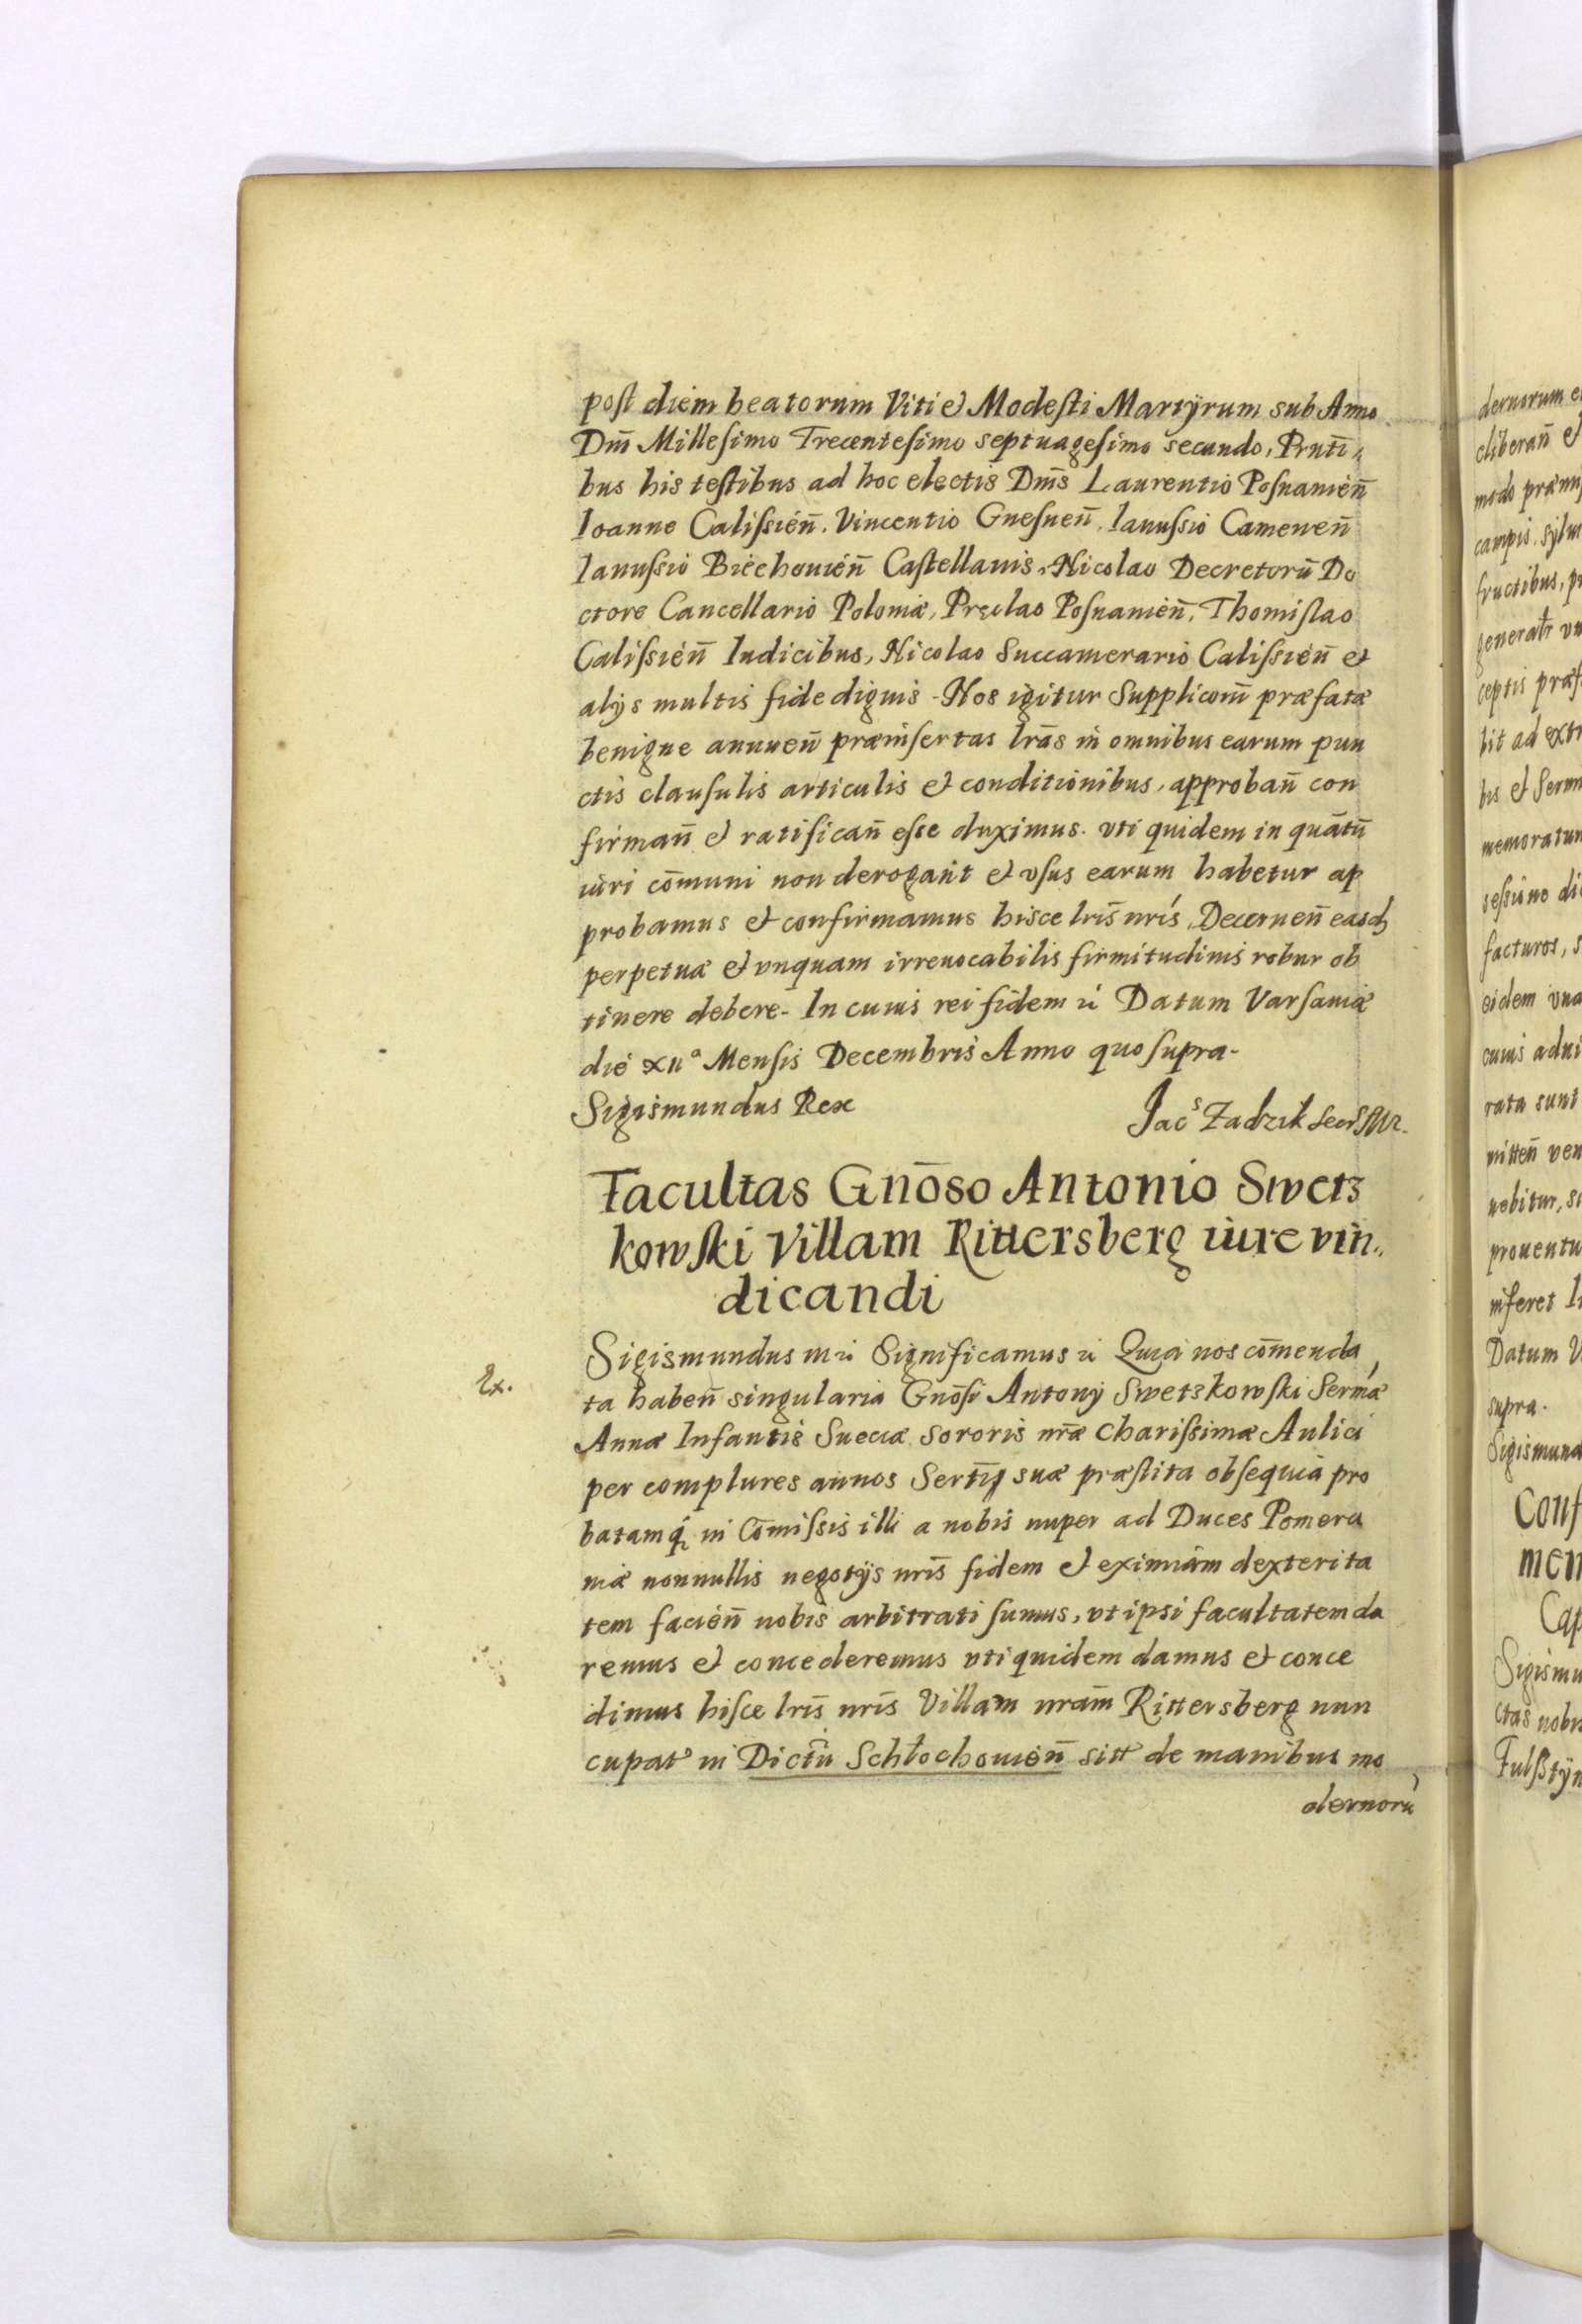 post diem beatorum Viti et Modesti Martÿrum sub Anno
Dñi Millesimo Trecentesimo septuagesimo secundo, Pñti,,
bus his testibus ad hoc electis Dñis Laurentio Posnanień
Ioanne Calissień. Vincentio Gnesneñ. Ianussio Cameneñ
Ianussio Biechouień Castellanis, Nicolao Decretorũ Do
ctore Cancellario Poloniæ, Preclao Posnanień, Thomislao
Calissień Iudicibus, Nicolao Succamerario Calissień et
alÿs multis fide dignis. Nos igitur Supplicoñi præfatæ
benigne annueñ præinsertas lr̃as in omnibus earum pun
ctis clausulis articulis et conditionibus, approbañ con
firmañ et ratificañ esse duximus. vti quidem in quãtũ
iuri cõmuni non derogant et vsus earum habetur ap
probamus et confirmamus hisce lris̃ nris̃, Decerneñ easd
perpetuæ et vnquam irreuocabilis firmitudinis robur ob
tinere debere. In cuius rei fidem ꝛć Datum Varsauiæ
die XIIª Mensis Decembris Anno quo supra.
Sigismundus Rex
Jacˢ Zadzik Secr
Facultas Gñoso Antonio Swetz
kowski Villam Rittersberg iure vin,,
dicandi
Ex.
Sigismundus III ꝛć Significamus ꝛć Quia nos cõmenda
ta habeñ singularia Gñosi Antonÿ Swetzkowski Serm̃æ
Annæ Infantis Sueciæ Sororis nr̃æ Charissimæ Aulici
per complures annos Sertĩ suæ præstita obsequia pro
batamq́ꝫ in Cõmissis illi a nobis nuper ad Duces Pomera
niæ nonnullis negotÿs nris̃ fidem et eximiam dexterita
tem facień nobis arbitrati sumus, vt ipsi facultatem da
remus et concederemus vti quidem damus et conce
dimus hisce lris̃ nris̃ Villam nrãm Rittersberg nun
cupat in Dictũ Schlochouień sitt de manibus mo
dernorũ
dernorum e
cliberañ et
modo præmis
campis, sylu
fructibus, pr
generalr̃ vn
ceptis præf
bit ad extr
bis et Serm
memoratum
sessione di
facturos, s
eidem vna
cuius adui
rata sunt
mitteñ ven
uebitur, si
prouentu
inferet In
Datum V
supra.
Sigismund
Conf
men
Cap
Sigismu
ctas nobis
Fulsstÿn